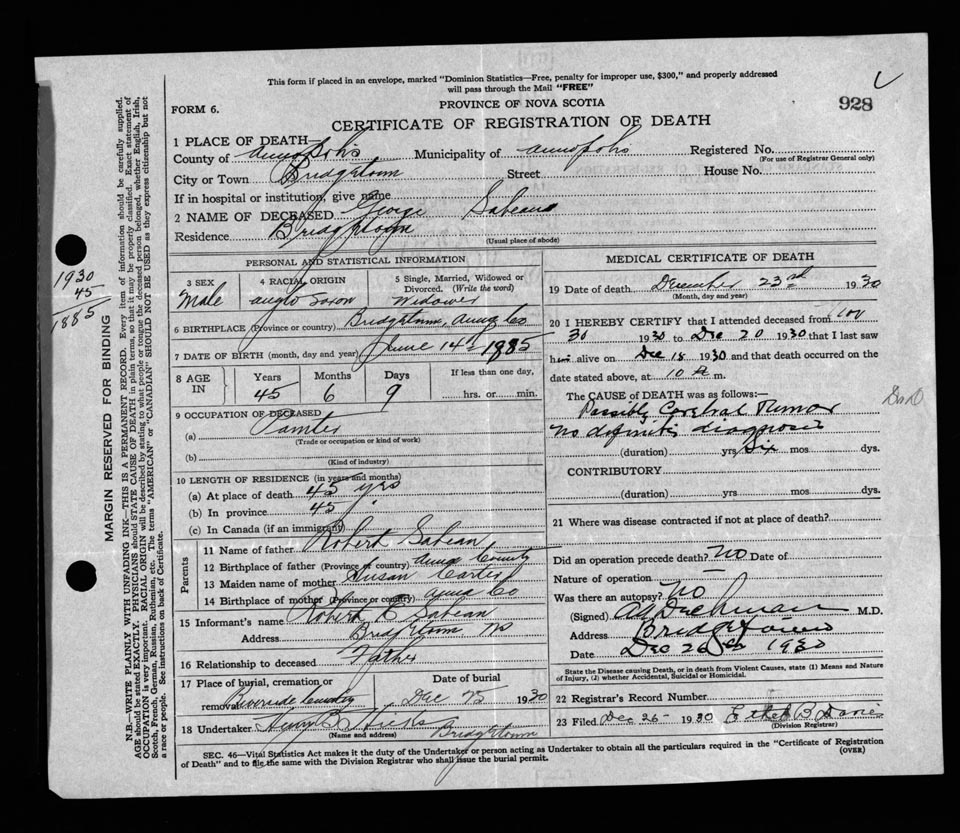 This form if placed in an envelope, marked "Dominion Statistics—Free, penalty for improper use, $300," and properly addressed
will pass through the Mail "FREE"
FORM 6.
PROVINCE OF NOVA SCOTIA
928
CERTIFICATE OF REGISTRATION OF DEATH
1 PLACE OF DEATH
County of Annapolis Municipality of Annapolis Registered No.
(For use of Registrar General only)
City or Town Bridgetown Street House No.
If in hospital or institution, give name
2 NAME OF DECEASED George Sabeans
Residence Bridgetown
(Usual place of abode)
PERSONAL AND STATISTICAL INFORMATION
3 SEX 4 RACIAL ORIGIN 5 Single, Married, Widowed or Divorced. (Write the word)
Male Anglo Saxon Widower
6 BIRTHPLACE (Province or country) Bridgetown, Anna Co
7 DATE OF BIRTH (month, day and year) June 14th 1885
8 AGE IN Years Months Days If less than one day,
45 6 9 hrs. or min.
9 OCCUPATION OF DECEASED
(a) Painter
(Trade or occupation or kind of work)
(b)
(Kind of industry)
10 LENGTH OF RESIDENCE (in years and months)
(a) At place of death 45 yrs
(b) In province 45 "
(c) In Canada (if an immigrant)
Parents
11 Name of father Robert Sabean
12 Birthplace of father (Province or country) Anna County
13 Maiden name of mother Susan Carter
14 Birthplace of mother (Province or country) Anna Co
15 Informant's name Robert E Sabean
Address Bridgetown NS
16 Relationship to deceased Father
17 Place of burial, cremation or removal Date of burial
Riverside Cemetery Dec 25 1930
18 Undertaker Hicks
(Name and address) Bridgetown
MEDICAL CERTIFICATE OF DEATH
19 Date of death December 23rd 1930
(Month, day and year)
20 I HEREBY CERTIFY that I attended deceased from Nov
30 1930 to Dec 20 1930 that I last saw
him alive on Dec 18 1930 and that death occurred on the
date stated above, at 10 a m.
The CAUSE OF DEATH was as follows:—
Possibly Cerebral Tumor
no definite diagnosis
(duration) yrs Six mos dys.
CONTRIBUTORY
(duration) yrs mos dys.
21 Where was disease contracted if not at place of death?
Did an operation precede death? No Date of
Nature of operation
Was there an autopsy? No
(Signed) M.D.
Address Bridgetown
Date Dec 26th 1930
State the Disease causing Death, or in death from Violent Causes, state (1) Means and Nature
of Injury, (2) whether Accidental, Suicidal or Homicidal.
22 Registrar's Record Number
23 Filed Dec 26 - 1930 Ethel B
(Division Registrar)
SEC. 46—Vital Statistics Act makes it the duty of the Undertaker or person acting as Undertaker to obtain all the particulars required in the "Certificate of Registration
of Death" and to file the same with the Division Registrar who shall issue the burial permit.
(OVER)
1930
45
1885
MARGIN RESERVED FOR BINDING
N.B.—WRITE PLAINLY WITH UNFADING INK—THIS IS A PERMANENT RECORD. Every item of information should be carefully supplied.
AGE should be stated EXACTLY. PHYSICIANS should STATE CAUSE OF DEATH in plain terms, so that it may be properly classified. Exact statement of
OCCUPATION is very important. RACIAL ORIGIN will be described by stating to what people or tongue the deceased person belonged, whether English, Irish,
Scotch, French, German, Russian, Ruthenian, etc. The terms "AMERICAN" or "CANADIAN" SHOULD NOT BE USED as they express citizenship but not
a race or people. See instructions on back of Certificate.